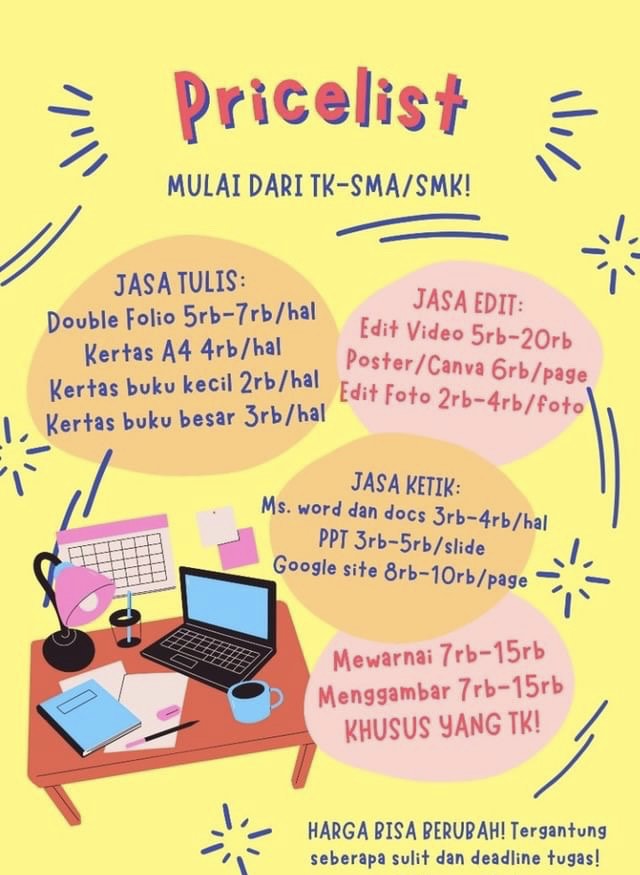 Pricelist
MULAI DARI TK-SMA/SMK!
JASA TULIS:
Double Folio 5rb-7rb/hal
Kertas A4 4rb/hal
Kertas buku kecil 2rb/hal
Kertas buku besar 3rb/hal
JASA EDIT:
Edit Video 5rb-20rb
Poster/Canva 6rb/page
Edit Foto 2rb-4rb/foto
JASA KETIK:
Ms. word dan docs 3rb-4rb/hal
PPT 3rb-5rb/slide
Google site 8rb-10rb/page
Mewarnai 7rb-15rb
Menggambar 7rb-15rb
KHUSUS YANG TK!
HARGA BISA BERUBAH! Tergantung
seberapa sulit dan deadline tugas!